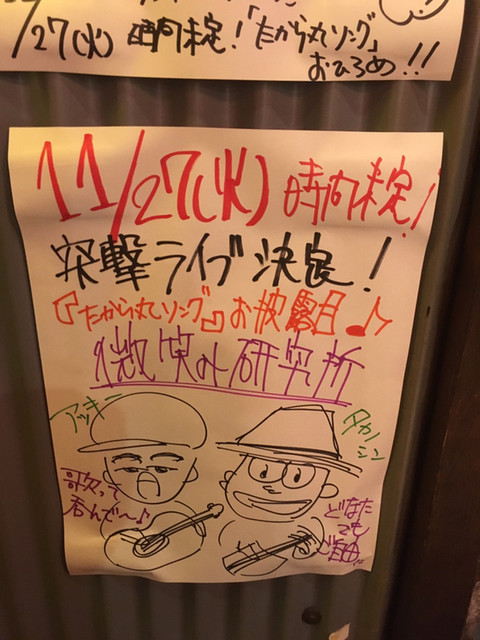 /27(火) 時間未定!「たから丸ソング」
おひろめ!!
11/27(火) 時間未定!
突撃ライブ決定!
『たから丸ソング』お披露目♪
微笑み研究所
アッキー
タカノシン
歌って
呑んで〜♪
どなた
でも
ご自由!!